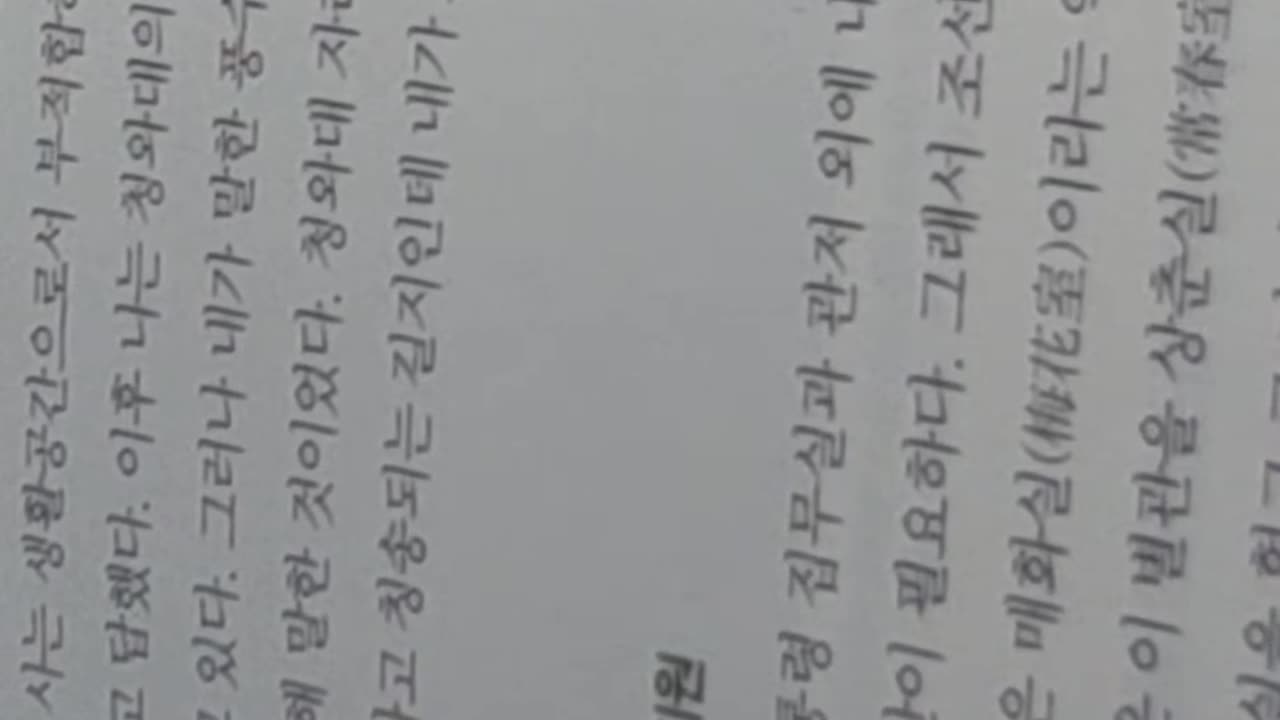 사는 생활공간으로서 부적합
고 답했다. 이후 나는 청와대의
있다. 그러나 내가 말한 풍수
해 말한 것이었다. 청와대 자리
라고 칭송되는 길지인데 내가
원
통령 집무실과 관저 외에 나
간이 필요하다. 그래서 조선
은 매화실(梅花室)이라는
은 이 별관을 상춘실(常春室
실을 헐고 그